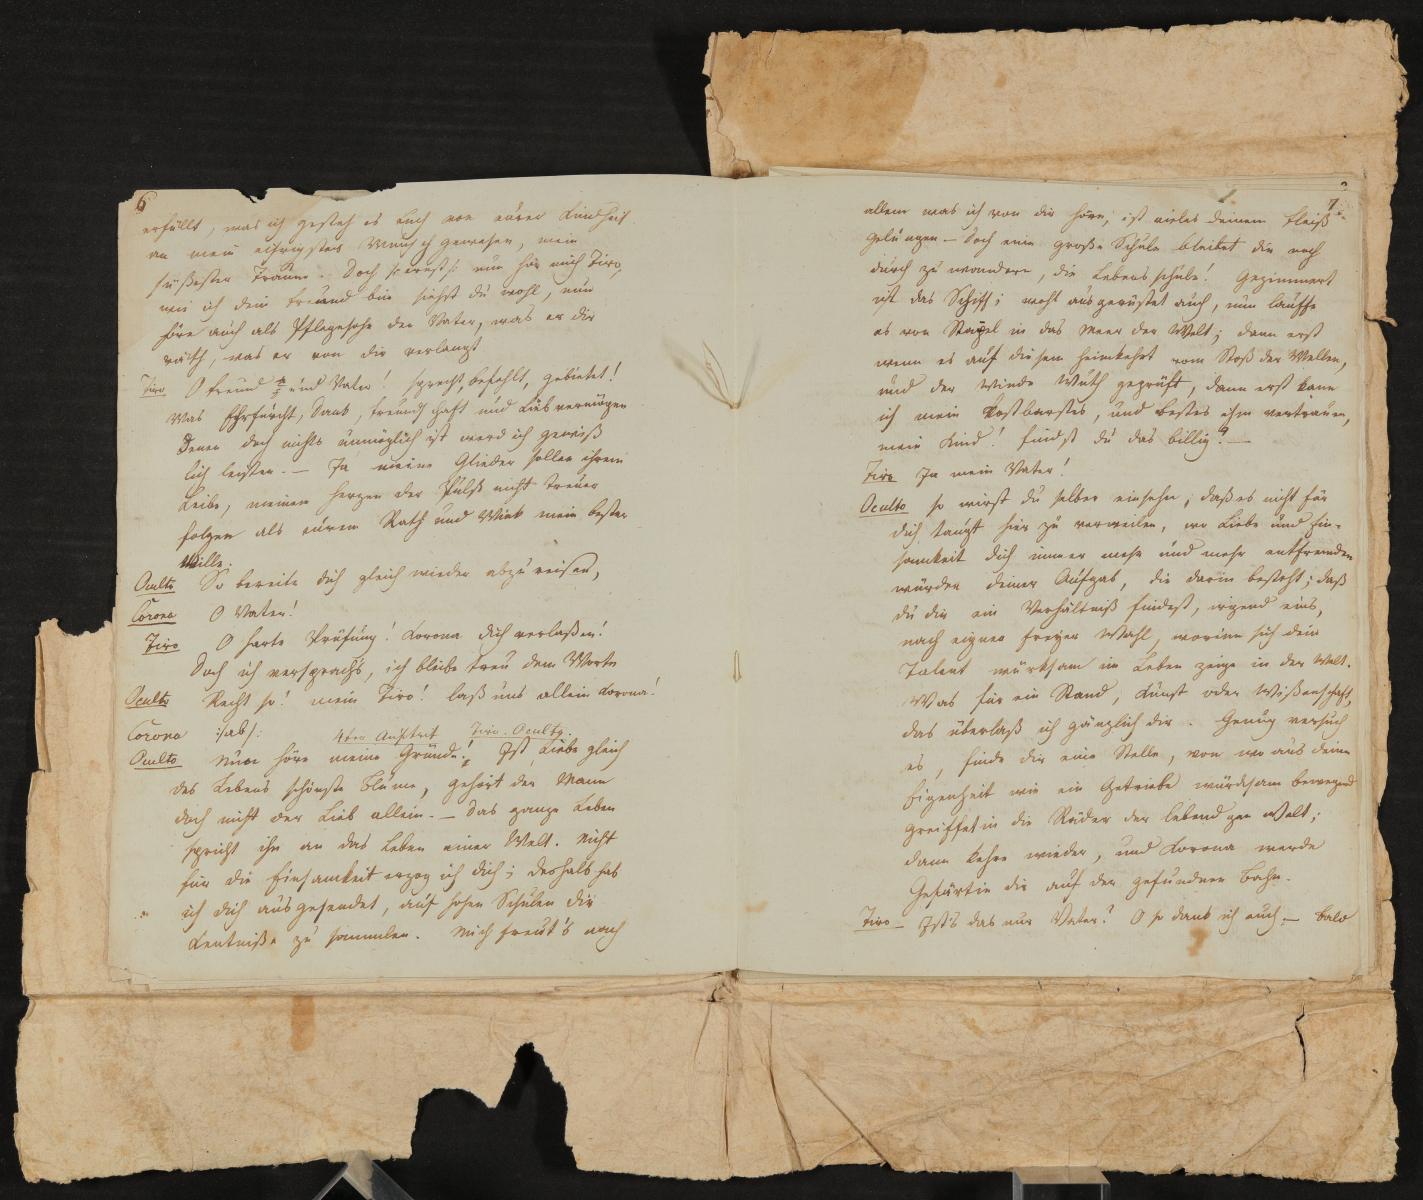 6
erfüllt, was ich gesteh es Euch von eurer Kindheit
an mein eifrigster Wunsch gewesen, mein
süßester Traum. Doch /: ernst :/ nun hör mich Tiro,
wie ich dein Freund bin siehst du wohl, nun
höre auch als Pflegesohn den Vater, was er dir
räth, was er von dir verlangt
Tiro O Freund und Vater! sprecht, befehlt, gebietet!
Was Ehrfurcht, Dank, Freundschaft und Lieb vermögen
Denen doch nichts unmöglich ist werd ich gewiß
lich leisten. — Ja meine Glieder sollen ihrem
Leibe, meinem Herzen der Pulß nicht treuer
folgen als eurem Rath und Wink mein bester
Wille.
Oculto So bereite dich gleich wieder abzureisen,
Corona O Vater!
Tiro O harte Prüfung! Corona dich verlaßen!
Doch ich versprachs, ich bleibe treu dem Worte
Oculto Recht so! mein Tiro! laß uns allein Corona!
Corona :/ab/:
4ter Auftrit Tiro. Oculto.
Oculto Nun höre meine Gründe! Ist Liebe gleich
des Lebens schönste Blume, gehört der Mann
doch nicht der Lieb allein. — Das ganze Leben
spricht ihn an das Leben einer Welt. Nicht
für die Einsamkeit erzog ich dich; deshalb hab
ich dich ausgesendet, auf hohen Schulen dir
Kentniße zu sammlen. Mich freut's nach
7
allem was ich von dir höre, ist vieles deinem Fleiß
gelungen — Doch eine große Schule bleibet dir noch
durch zu wandern, die Lebensschule! Gezimmert
ist das Schiff; wohl ausgerüstet auch, nun lauffe
es von Stapel in das Meer der Welt; dann erst
wenn es auf diesem heimkehrt vom Stoß der Wellen,
und der Winde Wuth geprüft, dann erst kann
ich mein Kostbarstes, und Bestes ihm vertrauen,
mein Kind! findst du das billig? —
Tiro Ja mein Vater!
Oculto so wirst du selber einsehn, daß es nicht für
dich taugt hier zu verweilen, wo Liebe und Ein-
samkeit dich immer mehr und mehr entfremden
würden deiner Aufgab, die darin besteht; daß
du dir ein Verhältniß findest, irgend eins,
nach eigner freyer Wahl, worinn sich dein
Talent würksam im Leben zeige in der Welt.
Was für ein Stand, Kunst oder Wißenschaft,
das überlaß ich gänzlich dir. Genug versuch
es, finde dir eine Stelle, von wo aus deine
Eigenheit wie ein Getriebe würcksam bewegend
greiffet in die Räder der lebendgen Welt;
dann kehre wieder, und Corona werde
Gefärtin dir auf der gefundnen Bahn.
Tiro — Ist's das nur Vater? O so dank ich euch — bald